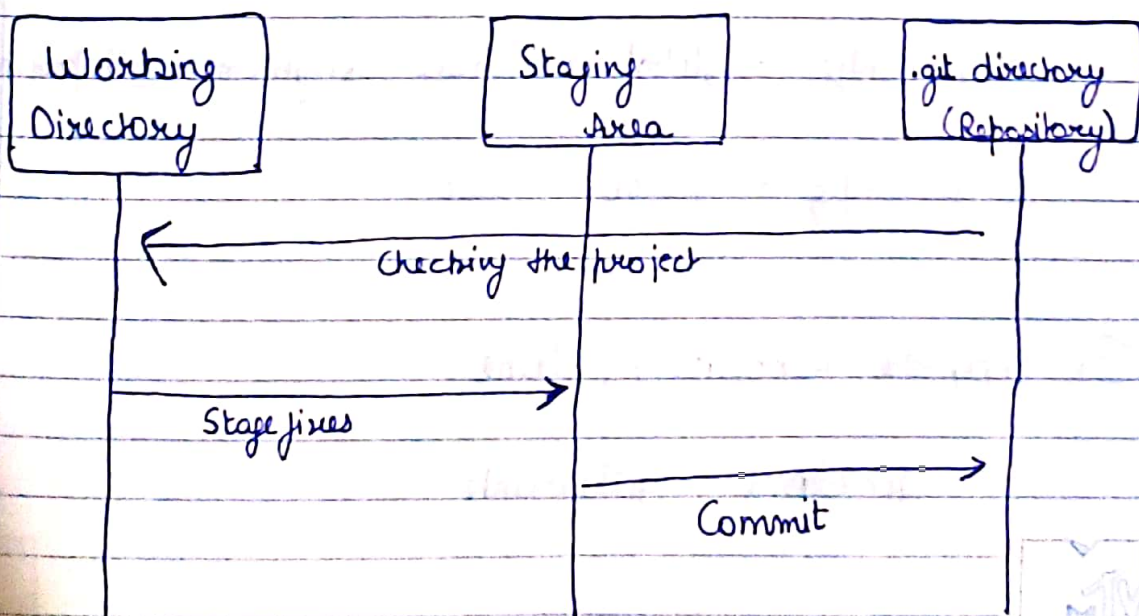 Working
Directory
Staging
Area
.git directory
(Repository)
Checking the project
Stage fixes
Commit